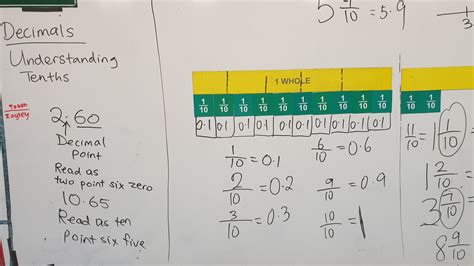 Decimals
Understanding
Tenths
2.60
Decimal
point
Read as
two point six zero
10.65
Read as ten
point six five
5 9/10 = 5.9
1 WHOLE
1/10 1/10 1/10 1/10 1/10 1/10 1/10 1/10 1/10 1/10
0.1 0.1 0.1 0.1 0.1 0.1 0.1 0.1 0.1 0.1
1/10 = 0.1 6/10 = 0.6
2/10 = 0.2 9/10 = 0.9
3/10 = 0.3 10/10 = 1
1/10 1/10
11/10 = 1 1/10
1 2/10
3 7/10
8 9/10